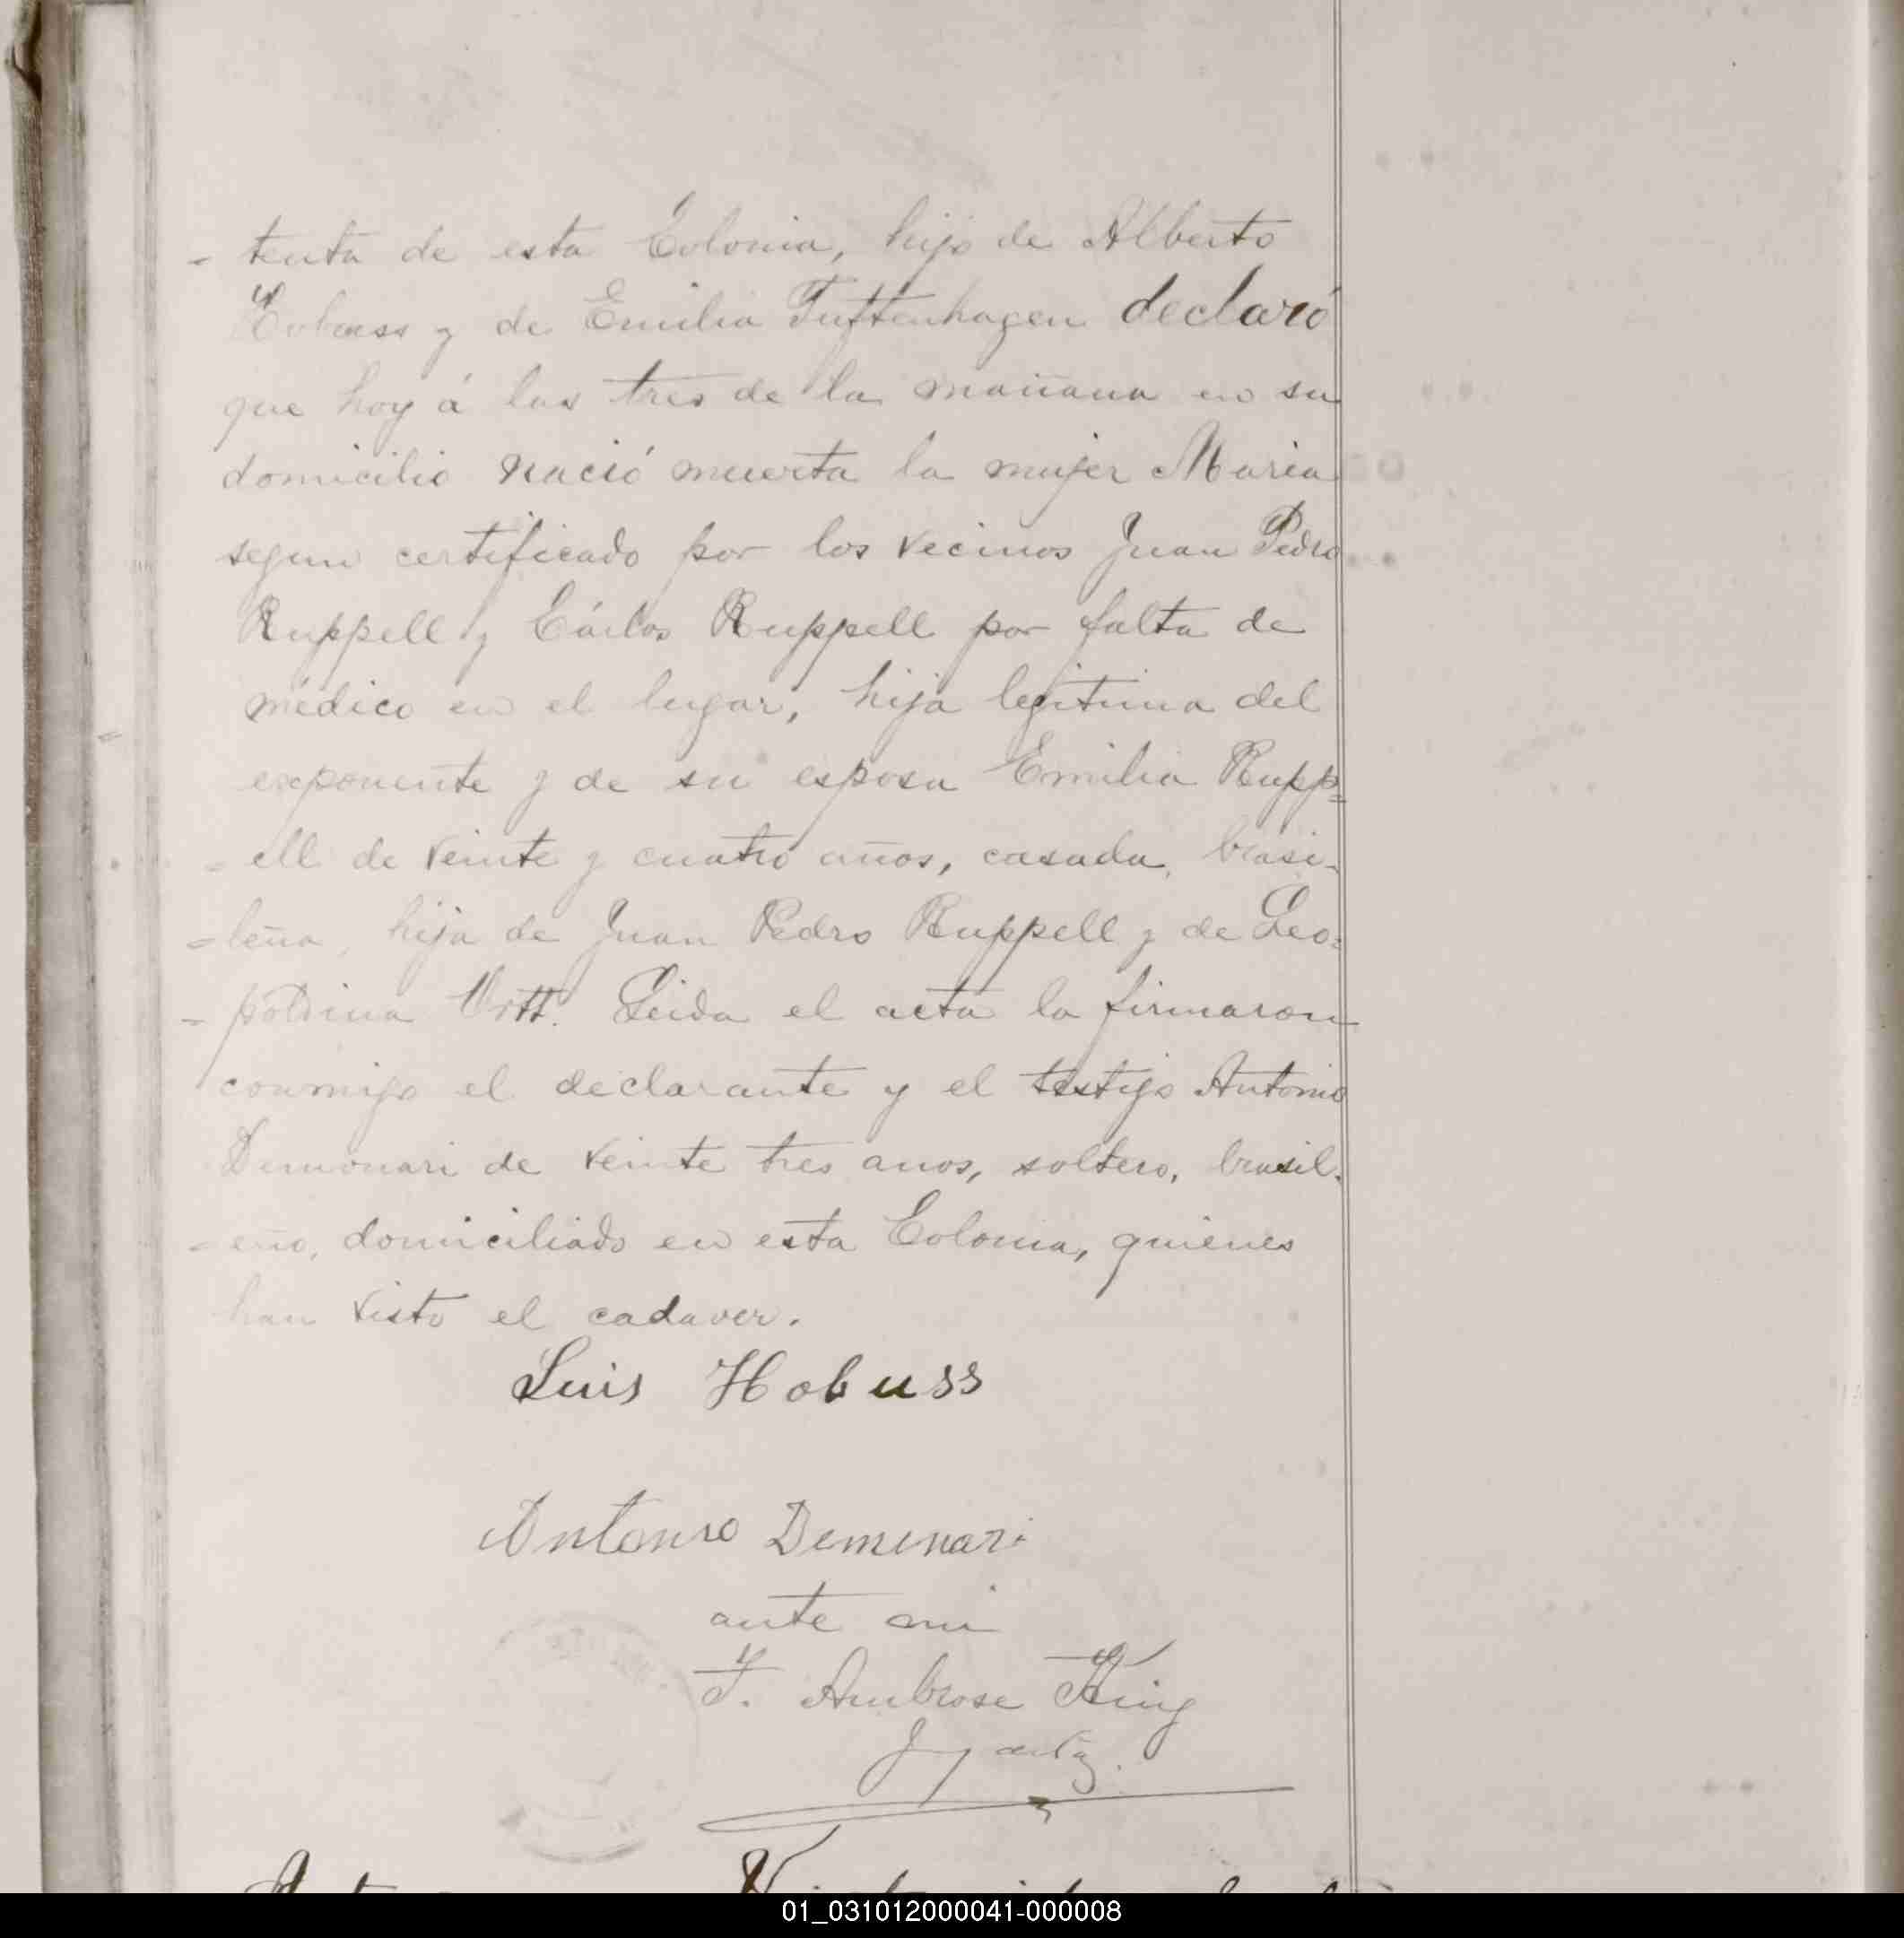 - tenta de esta Colonia, hijo de Alberto
y de Emilia Tuftenhagen declaró
que hoy á las tres de la mañana en su
domicilio nació muerta la mujer Maria
segun certificado por los vecinos Juan Pedro
Ruppell y Cárlos Ruppell por falta de
médico en el lugar, hija legitima del
exponente y de su esposa Emilia Rupp=
- ell de veinte y cuatro años, casada, brasi-
=leña, hija de Juan Pedro Ruppell y de Leo=
- poldina Leida el acta la firmaron
conmigo el declarante y el testigo Antonio
de veinte tres anos, soltero, brasil-
- eño, domiciliado en esta Colonia, quienes
han visto el cadaver.
Luis Hobuss
Antonio Demenari
ante mi
F. Ambrose King
01_031012000041-000008